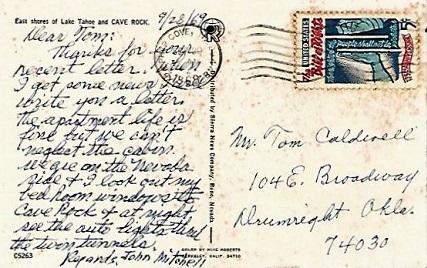 East shores of Lake Tahoe and CAVE ROCK.
9/28/69
Dear Tom:
Thanks for your
recent letter. when
I get some news I
write you a letter.
the apartment life is
fine but we can't
neglect the cabin.
we are on the Nevada
side & I look out my
bed Room windows to
Cave Rock & at night
see the auto lights thru
the twin tunnels.
Regards, John Mitchell
C5263
Distributed by Sierra News Company, Reno, Nevada
COLOR BY MIKE ROBERTS
BERKELEY, CALIF. 94710
UNITED STATES
The Bill of Rights
5¢
Mr. Tom Caldwell
104 E. Broadway
Drumright Okla.
74030